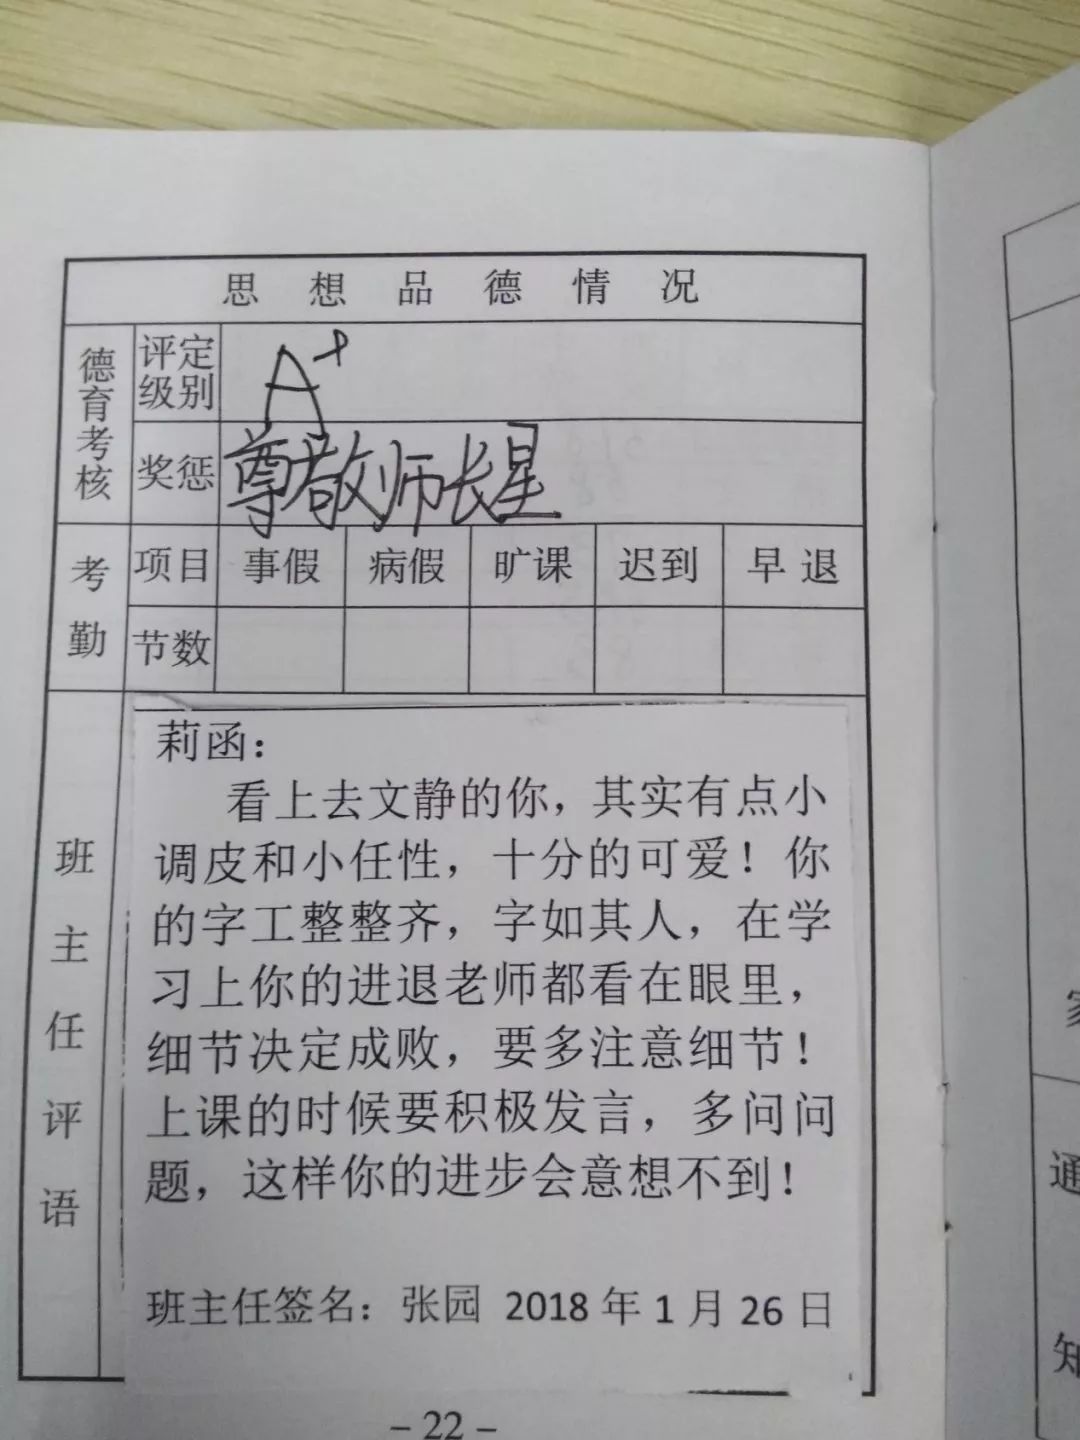 思想品德情况
德育考核
评定级别
A+
奖惩
尊敬师长星
考勤
项目 事假 病假 旷课 迟到 早退
节数
班主任评语
莉函：
看上去文静的你，其实有点小
调皮和小任性，十分的可爱！你
的字工整整齐，字如其人，在学
习上你的进退老师都看在眼里，
细节决定成败，要多注意细节！
上课的时候要积极发言，多问问
题，这样你的进步会意想不到！
班主任签名：张园 2018 年 1 月 26 日
- 22 -
通
知